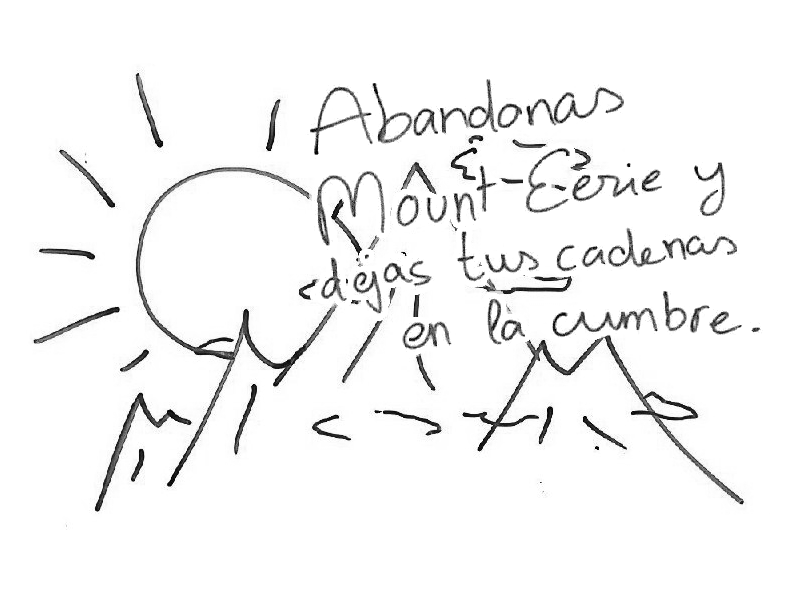 Abandonas
Mount-Eerie y
dejas tus cadenas
en la cumbre.